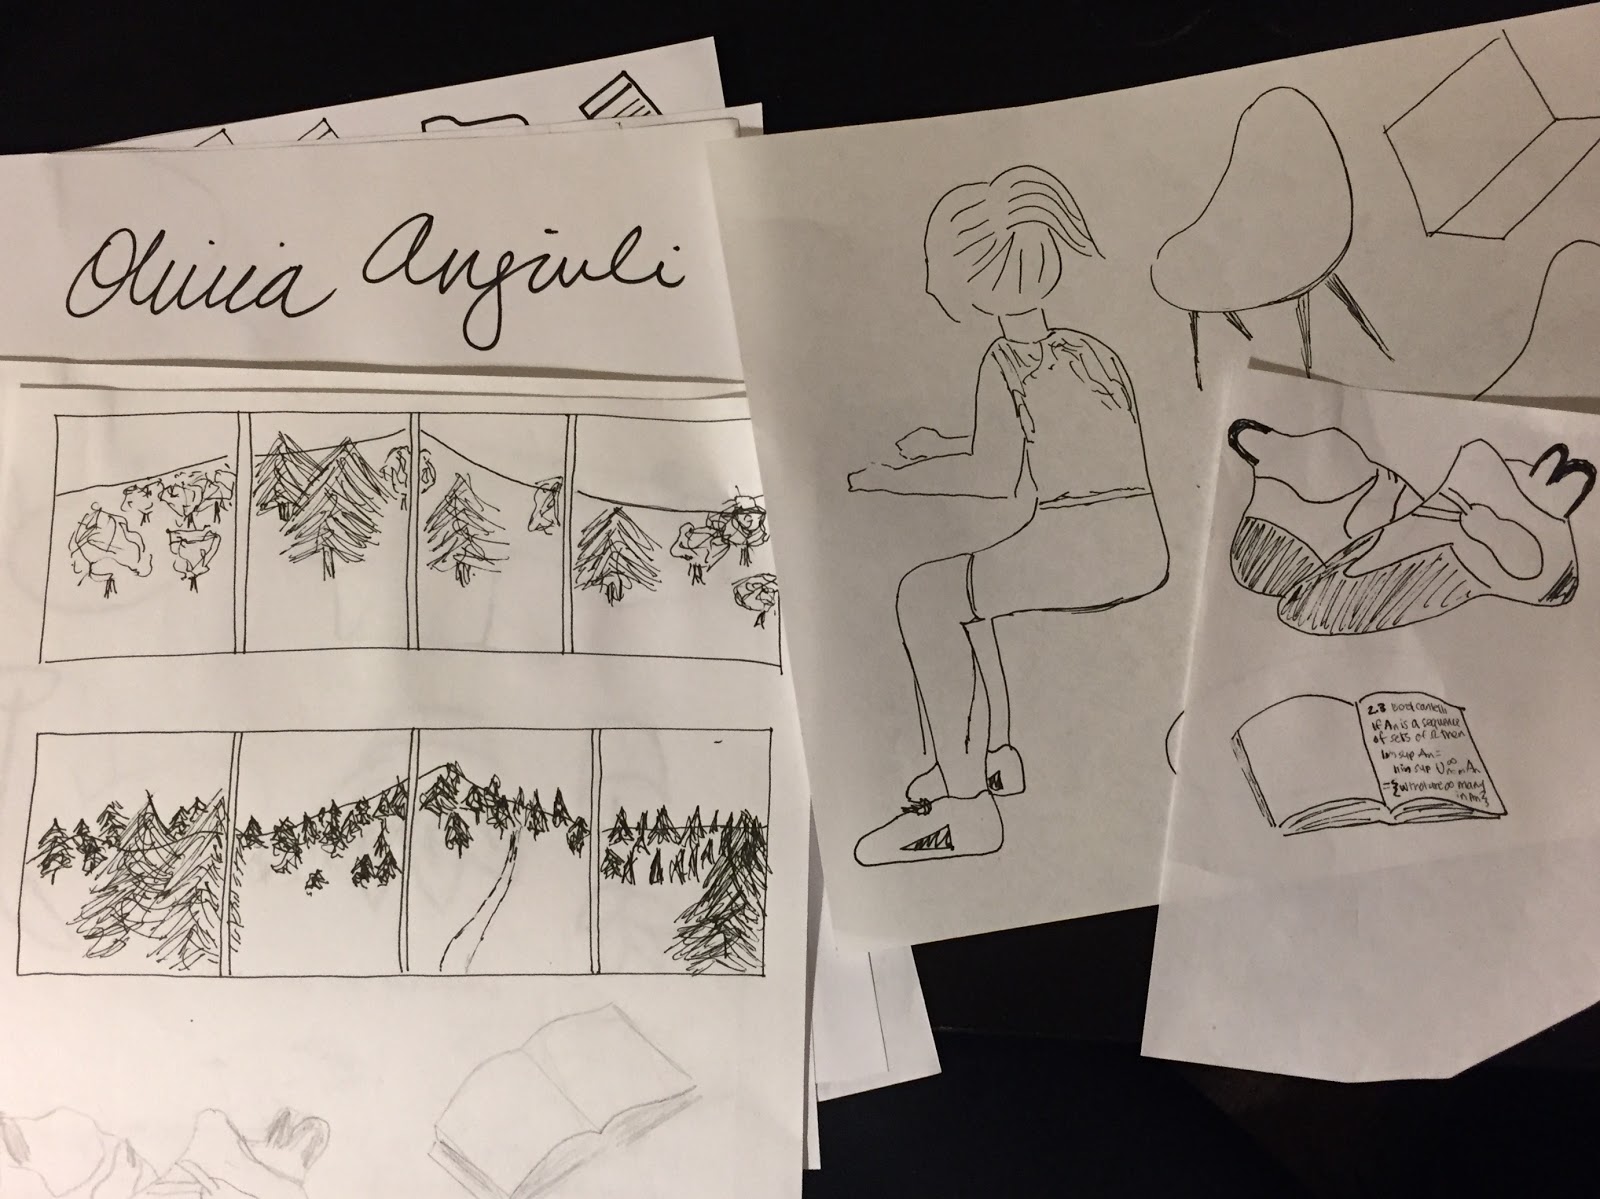 Olivia Angiuli
2.3 Borel Cantelli
If An is a sequence
of sets of Ω then
lim sup An =
lim sup ∪∞ m=n An
= {ω that are ∞ many
in An}